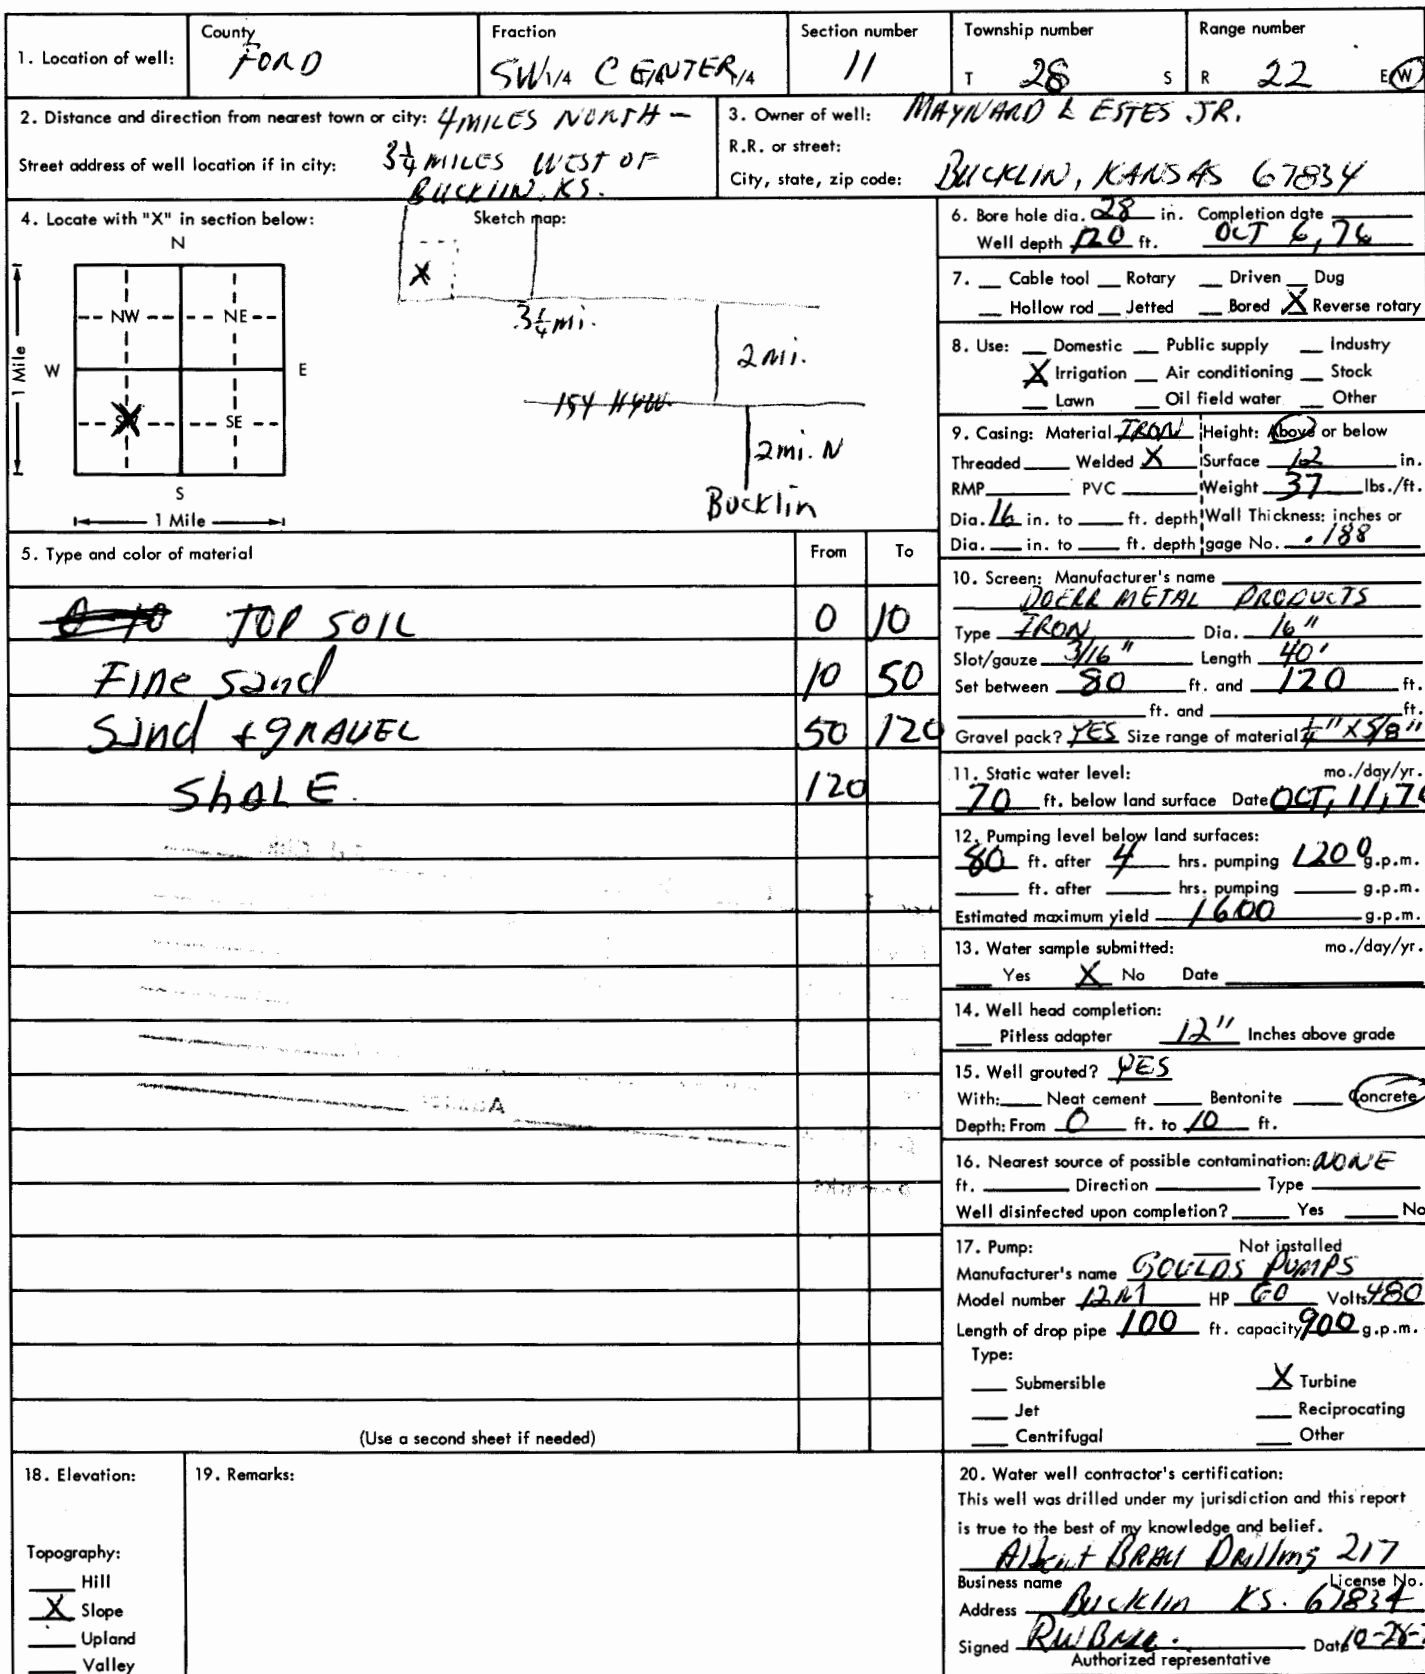 1. Location of well: County FORD Fraction SW 1/4 CENTER 1/4 Section number 11 Township number T 28 S Range number R 22 E/W
2. Distance and direction from nearest town or city: 4 MILES NORTH -
Street address of well location if in city: 3 1/4 MILES WEST OF
BUCKLIN, KS.
3. Owner of well: MAYNARD L ESTES JR.
R.R. or street:
City, state, zip code: BUCKLIN, KANSAS 67834
4. Locate with "X" in section below:
N
NW NE
W E
SW SE
S
1 Mile
1 Mile
Sketch map:
X
3 1/4 mi.
2 mi.
154 HYW.
2 mi. N
Bucklin
5. Type and color of material From To
0-10 TOP SOIL 0 10
Fine sand 10 50
Sand + gRAVEL 50 120
ShALE. 120
(Use a second sheet if needed)
6. Bore hole dia. 28 in. Completion date
Well depth 120 ft. OCT 6, 76
7. __ Cable tool __ Rotary __ Driven __ Dug
__ Hollow rod __ Jetted __ Bored X Reverse rotary
8. Use: __ Domestic __ Public supply __ Industry
X Irrigation __ Air conditioning __ Stock
__ Lawn __ Oil field water __ Other
9. Casing: Material IRON Height: Above or below
Threaded ____ Welded X Surface 12 in.
RMP ____ PVC ____ Weight 37 lbs./ft.
Dia. 16 in. to ____ ft. depth Wall Thickness: inches or
Dia. ____ in. to ____ ft. depth gage No. .188
10. Screen: Manufacturer's name
DOERR METAL PRODUCTS
Type IRON Dia. 16"
Slot/gauze 3/16" Length 40'
Set between 80 ft. and 120 ft.
____ ft. and ____ ft.
Gravel pack? YES Size range of material 1/4" X 5/8"
11. Static water level: mo./day/yr.
70 ft. below land surface Date OCT, 11, 76
12. Pumping level below land surfaces:
80 ft. after 4 hrs. pumping 1200 g.p.m.
____ ft. after ____ hrs. pumping ____ g.p.m.
Estimated maximum yield 1600 g.p.m.
13. Water sample submitted: mo./day/yr.
__ Yes X No Date ____
14. Well head completion:
__ Pitless adapter 12" Inches above grade
15. Well grouted? YES
With: __ Neat cement __ Bentonite __ Concrete
Depth: From 0 ft. to 10 ft.
16. Nearest source of possible contamination: NONE
ft. ____ Direction ____ Type ____
Well disinfected upon completion? ____ Yes ____ No
17. Pump: __ Not installed
Manufacturer's name GOULDS PUMPS
Model number 12M HP 60 Volts 480
Length of drop pipe 100 ft. capacity 900 g.p.m.
Type:
__ Submersible X Turbine
__ Jet __ Reciprocating
__ Centrifugal __ Other
18. Elevation:
Topography:
__ Hill
X Slope
__ Upland
__ Valley
19. Remarks:
20. Water well contractor's certification:
This well was drilled under my jurisdiction and this report
is true to the best of my knowledge and belief.
Drilling 217
Business name License No.
Address Bucklin KS. 67834
Signed Date 10-28-7
Authorized representative